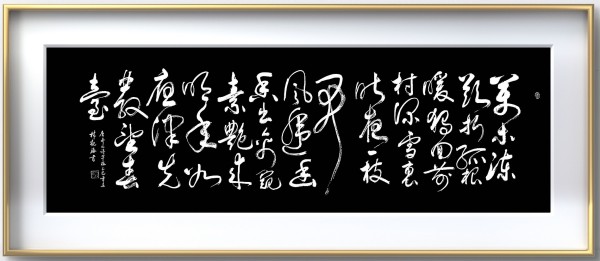 萬木凍
欲折孤根
暖獨回前
村深雪裏
昨夜一枝
開
風遞幽
香出禽窺
素艷來
明年如
應律先
發望春
臺